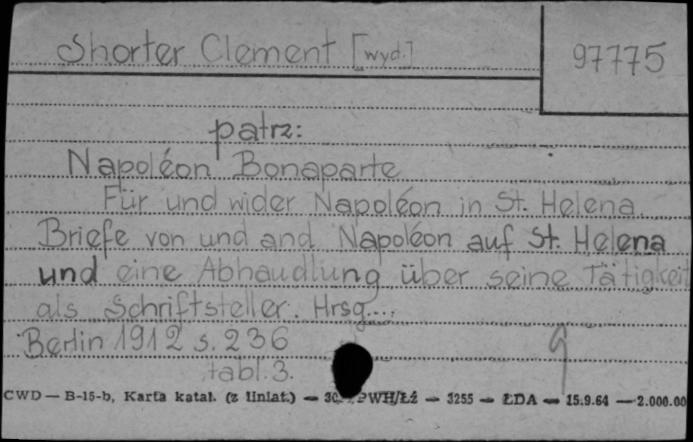 Shorter Clement [wyd.]
97775
patrz:
Napoléon Bonaparte
Für und wider Napoléon in St. Helena.
Briefe von und and Napoléon auf St. Helena
und eine Abhaudlung über seine Tätigkeit
als Schriftsteller. Hrsg...,
Berlin 1912 s. 236
tabl. 3.
CWD — B-15-b, Karta katal. (z liniat.) — PWH/Łż — 3255 — ŁDA — 15.9.64 — 2.000.00